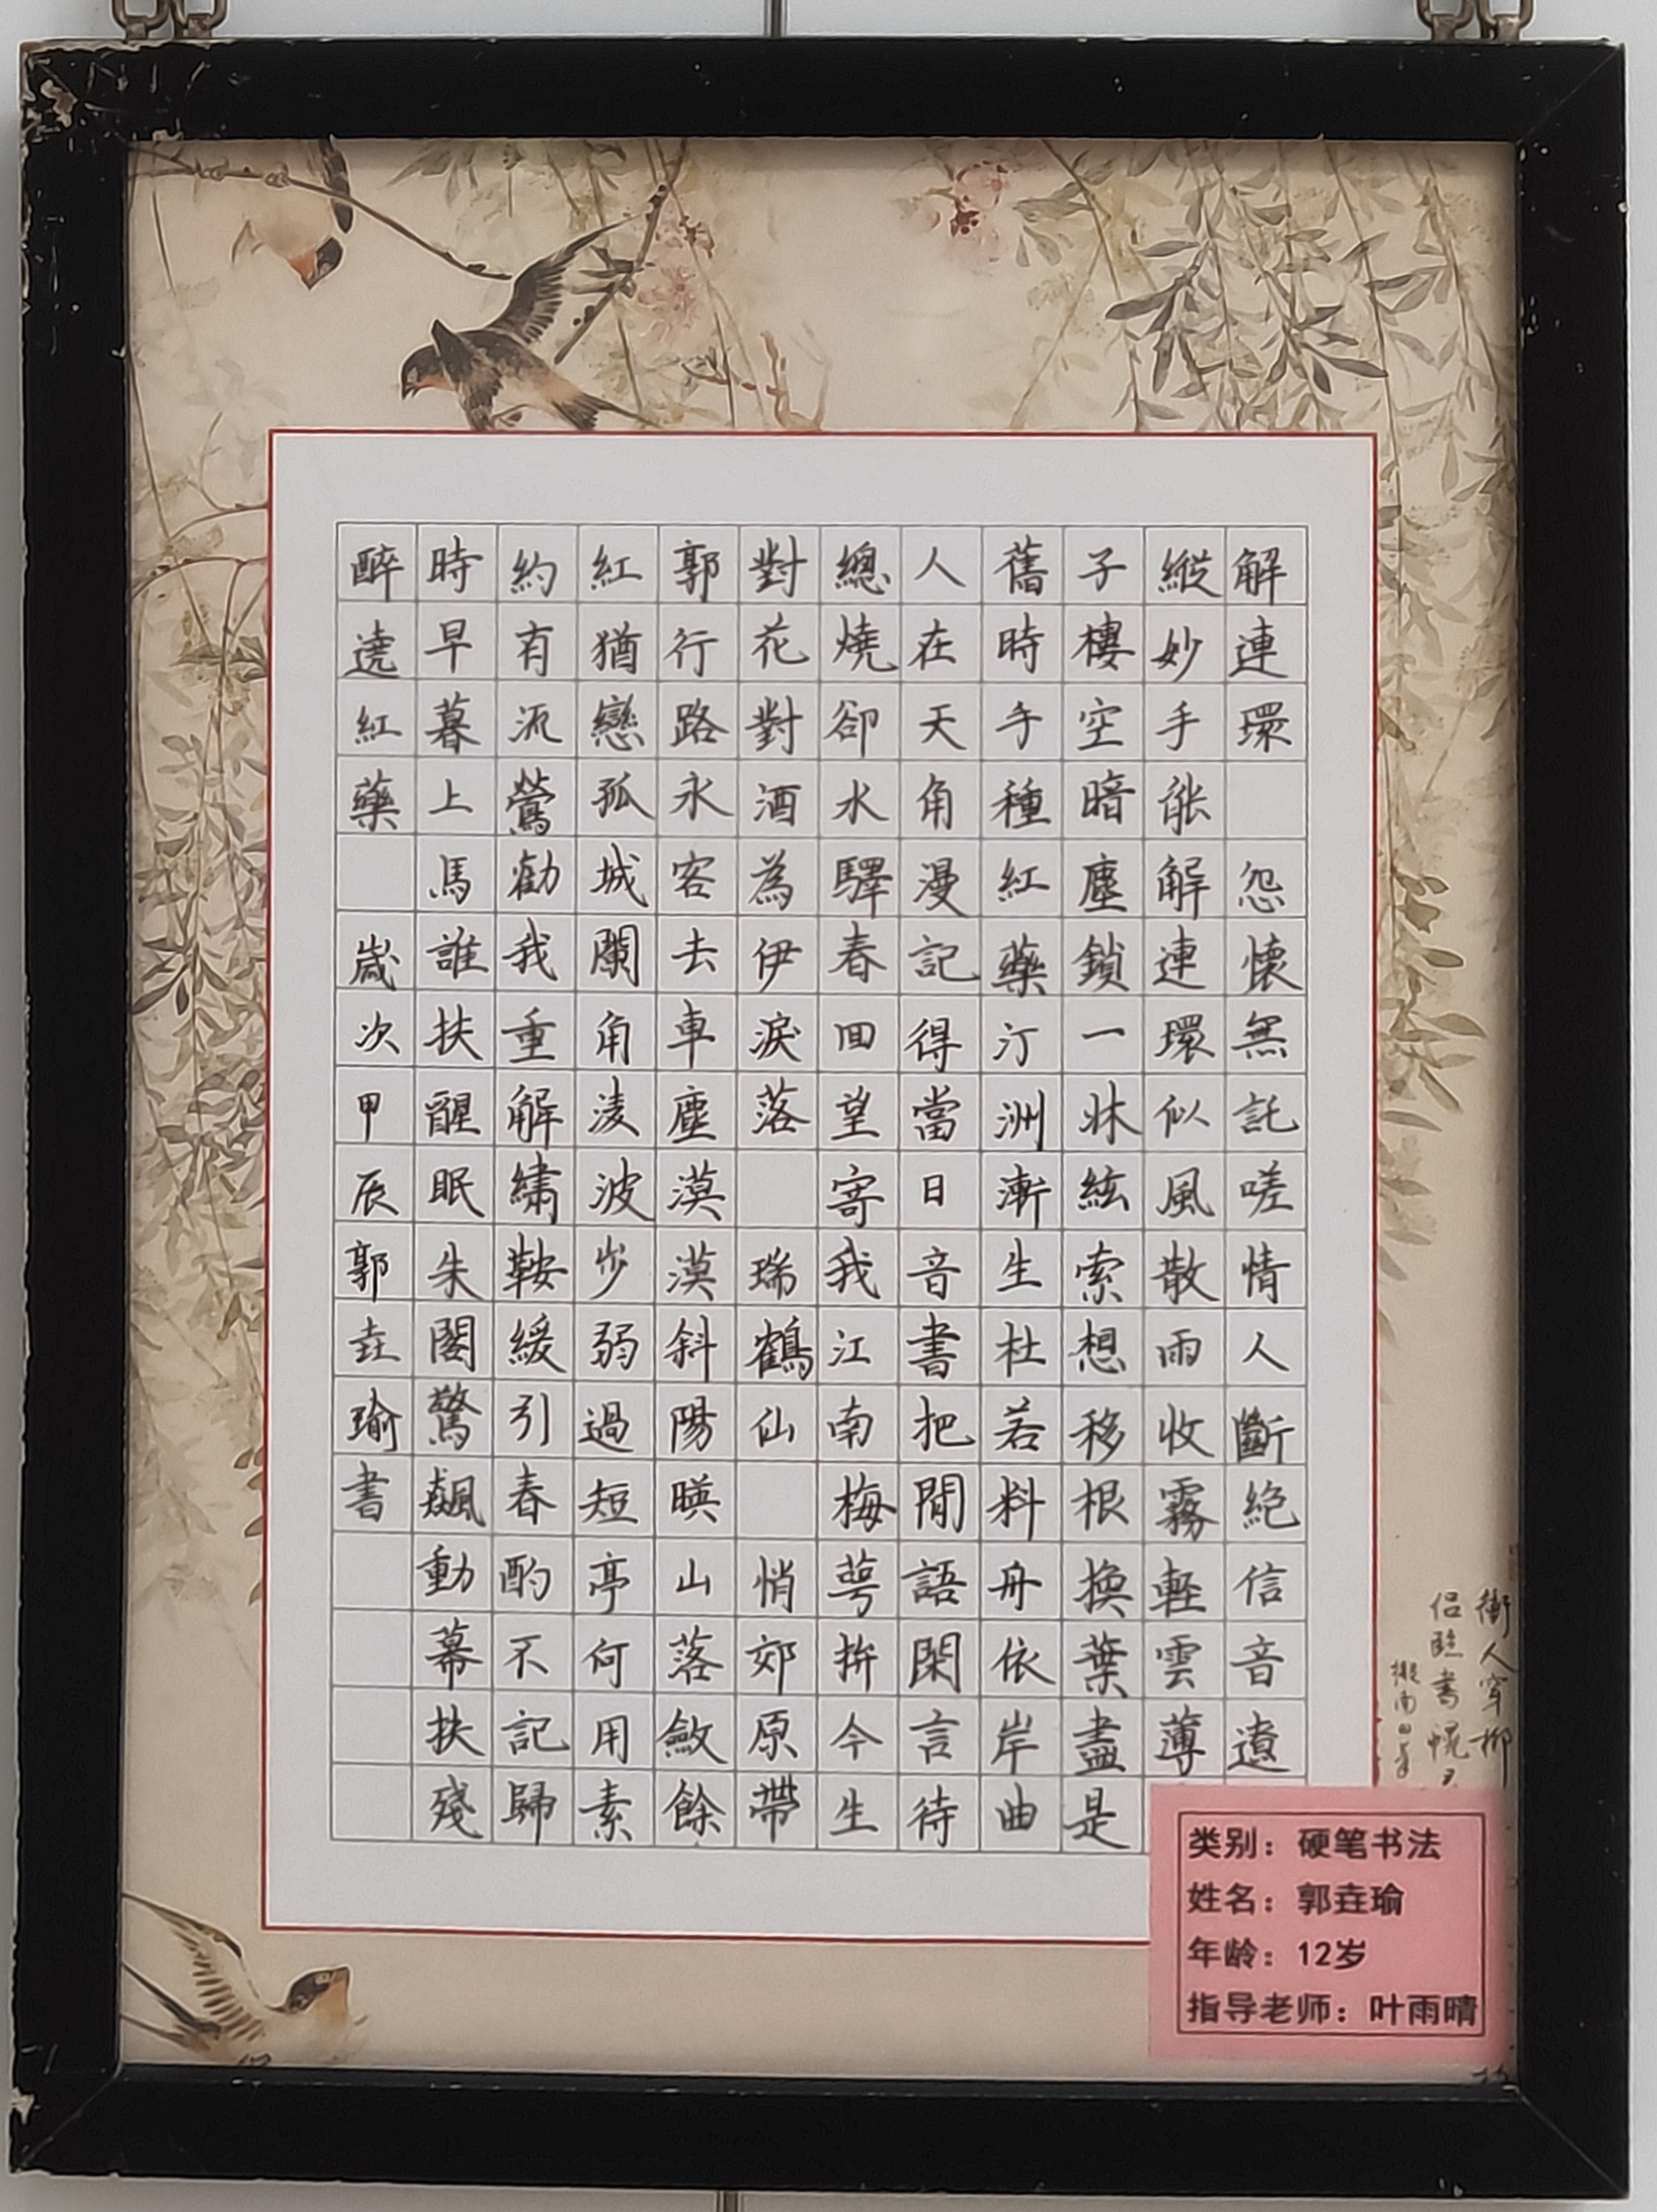 解連環 怨懷無託嗟情人斷絕信音遼
縱妙手能解連環似風散雨收霧輕雲薄
子樓空暗塵鎖一牀絃索想移根換葉盡是
舊時手種紅藥汀洲漸生杜若料舟依岸曲
人在天角漫記得當日音書把閒語閑言待
總燒卻水驛春回望寄我江南梅萼拚今生
對花對酒為伊淚落 瑞鶴仙 悄郊原帶
郭行路永客去車塵漠漠斜陽暎山落斂餘
紅猶戀孤城闌角淩波步弱過短亭何用素
約有流鶯勸我重解繡鞍緩引春酌不記歸
時早暮上馬誰扶醒眠朱閣驚飆動幕扶殘
醉遶紅藥 歲次甲辰郭垚瑜書
衝人穿柳
类别：硬笔书法
姓名：郭垚瑜
年龄：12岁
指导老师：叶雨晴